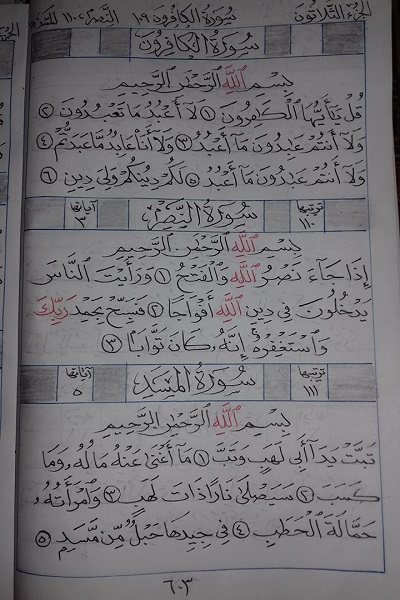 الجزء الثلاثون سورة الكافرون ١٠٩ النصر ١١٠
سورة الكافرون
بسم الله الرحمن الرحيم
قُلْ يَٰٓأَيُّهَا ٱلْكَٰفِرُونَ ١ لَآ أَعْبُدُ مَا تَعْبُدُونَ ٢
وَلَآ أَنتُمْ عَٰبِدُونَ مَآ أَعْبُدُ ٣ وَلَآ أَنَا۠ عَابِدٌ مَّا عَبَدتُّمْ ٤
وَلَآ أَنتُمْ عَٰبِدُونَ مَآ أَعْبُدُ ٥ لَكُمْ دِينُكُمْ وَلِىَ دِينِ ٦
ترتيبها ١١٠ سورة النصر آياتها ٣
بسم الله الرحمن الرحيم
إِذَا جَآءَ نَصْرُ ٱللَّهِ وَٱلْفَتْحُ ١ وَرَأَيْتَ ٱلنَّاسَ
يَدْخُلُونَ فِى دِينِ ٱللَّهِ أَفْوَاجًا ٢ فَسَبِّحْ بِحَمْدِ رَبِّكَ
وَٱسْتَغْفِرْهُ إِنَّهُۥ كَانَ تَوَّابًا ٣
ترتيبها ١١١ سورة المسد آياتها ٥
بسم الله الرحمن الرحيم
تَبَّتْ يَدَآ أَبِى لَهَبٍ وَتَبَّ ١ مَآ أَغْنَىٰ عَنْهُ مَالُهُۥ وَمَا
كَسَبَ ٢ سَيَصْلَىٰ نَارًا ذَاتَ لَهَبٍ ٣ وَٱمْرَأَتُهُۥ
حَمَّالَةَ ٱلْحَطَبِ ٤ فِى جِيدِهَا حَبْلٌ مِّن مَّسَدٍۭ ٥
٦٠٣